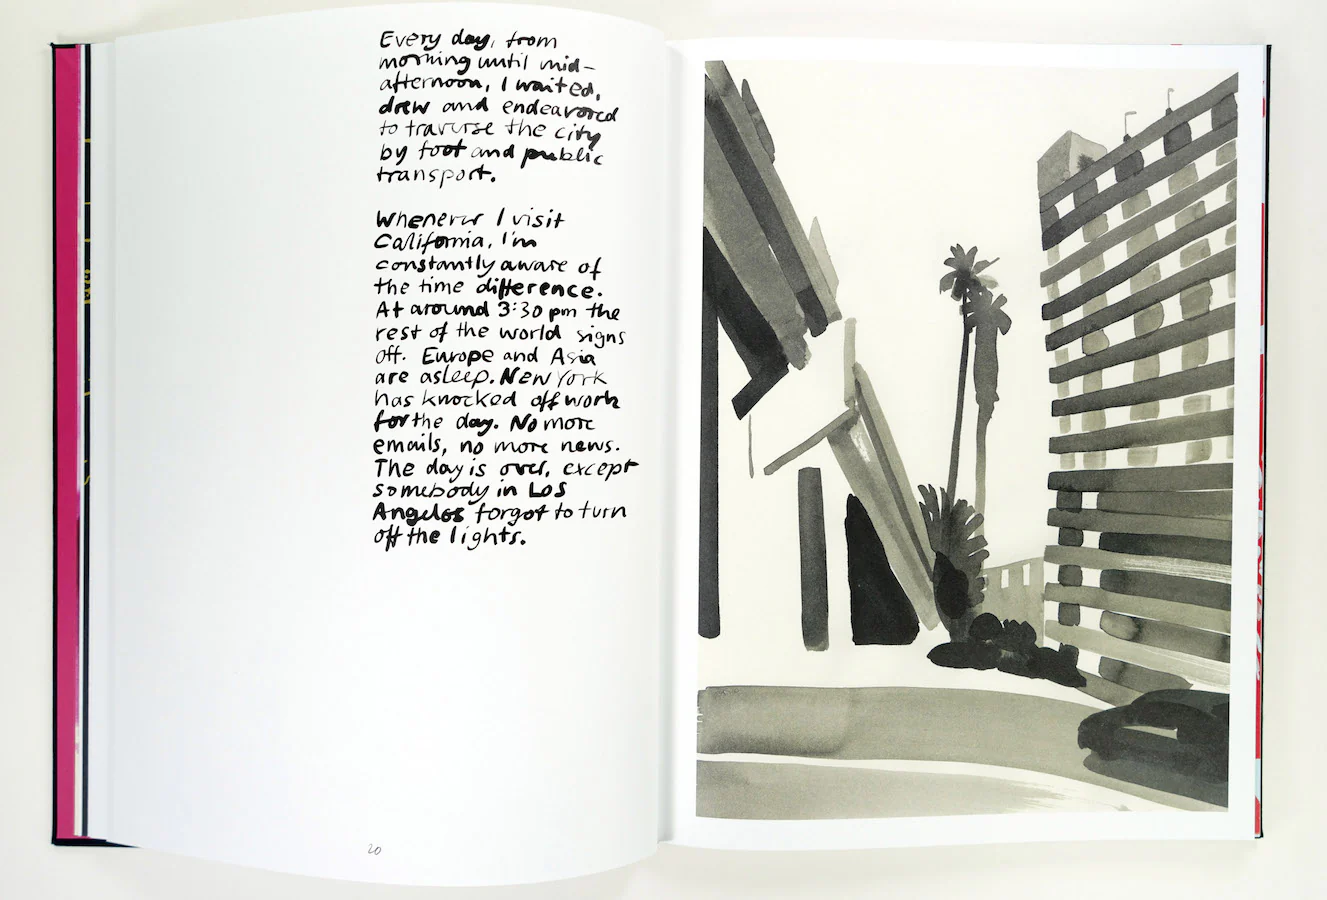 Every day, from
morning until mid-
afternoon, I waited,
drew and endeavored
to traverse the city
by foot and public
transport.
Whenever I visit
California, I'm
constantly aware of
the time difference.
At around 3:30 pm the
rest of the world signs
off. Europe and Asia
are asleep. New York
has knocked off work
for the day. No more
emails, no more news.
The day is over, except
somebody in Los
Angeles forgot to turn
off the lights.
20